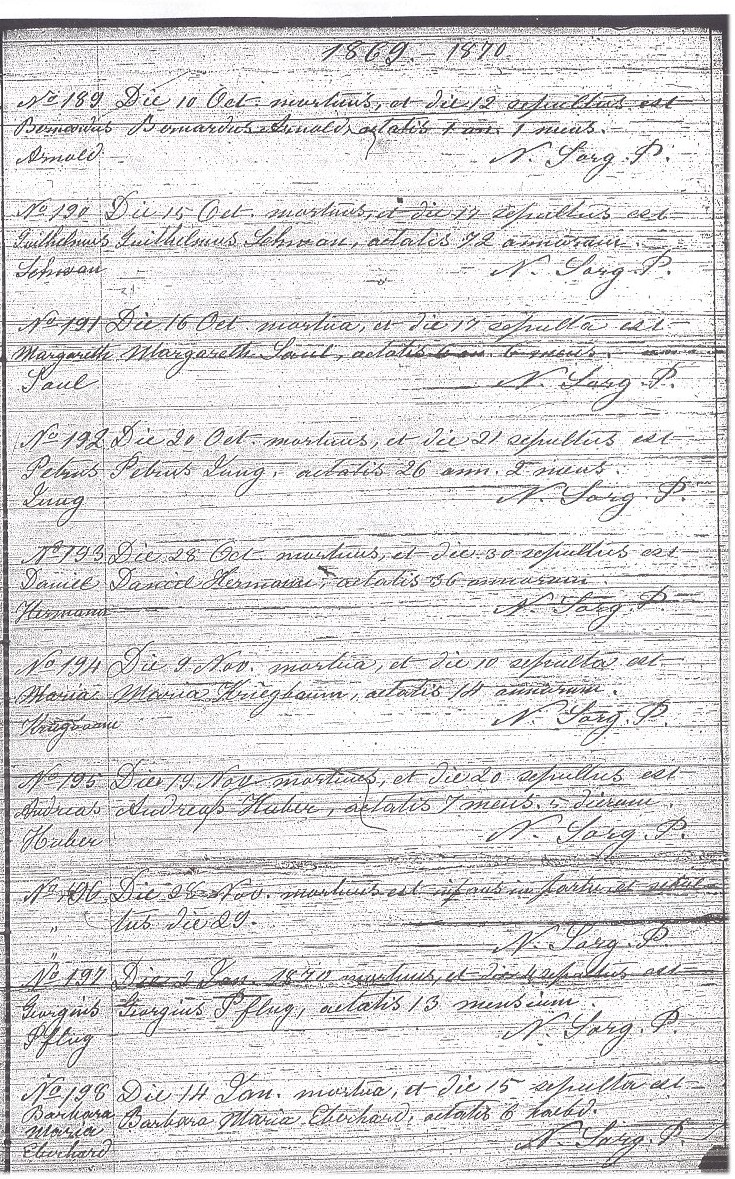 1869. - 1870
No 189 Die 10 Oct. mortuus, et die 12 sepultus est
Bernardus Bernardus Arnold, aetatis 1 an. 1 mens.
Arnold. N. Sorg. P.
No 190 Die 15 Oct. mortuus, et die 17 sepultus est
Guilhelmus Guilhelmus Schwan, aetatis 72 annorum.
Schwan N. Sorg. P.
No 191 Die 16 Oct. mortua, et die 17 sepulta est
Margareth Margareth Saul, aetatis 6 an. 6 mens.
Saul N. Sorg. P.
No 192 Die 20 Oct. mortuus, et die 21 sepultus est
Petrus Petrus Jung, aetatis 26 ann. 2 mens.
Jung N. Sorg. P.
No 193 Die 28 Oct mortuus, et die 30 sepultus est
Daniel Daniel Hermann, aetatis 36 annorum.
Hermann N. Sorg. P.
No 194 Die 9 Nov. mortua, et die 10 sepulta est
Maria Maria Kriegbaum, aetatis 14 annorum.
Kriegbaum N. Sorg. P.
No 195 Die 19 Nov mortuus, et die 20 sepultus est
Andreas Andreas Huber, aetatis 7 mens. 5 dierum.
Huber N. Sorg. P.
No 196 Die 28 Nov. mortuus est infans in partu, et sepul-
" tus die 29.
" N. Sorg. P.
No 197 Die 2 Jan. 1870 mortuus, et die 4 sepultus est
Georgius Georgius Pflug, aetatis 13 mensium.
Pflug N. Sorg. P.
No 198 Die 14 Jan. mortua, et die 15 sepulta est
Barbara Barbara Maria Eberhard, aetatis 6 hebd.
Maria
Eberhard N. Sorg. P.